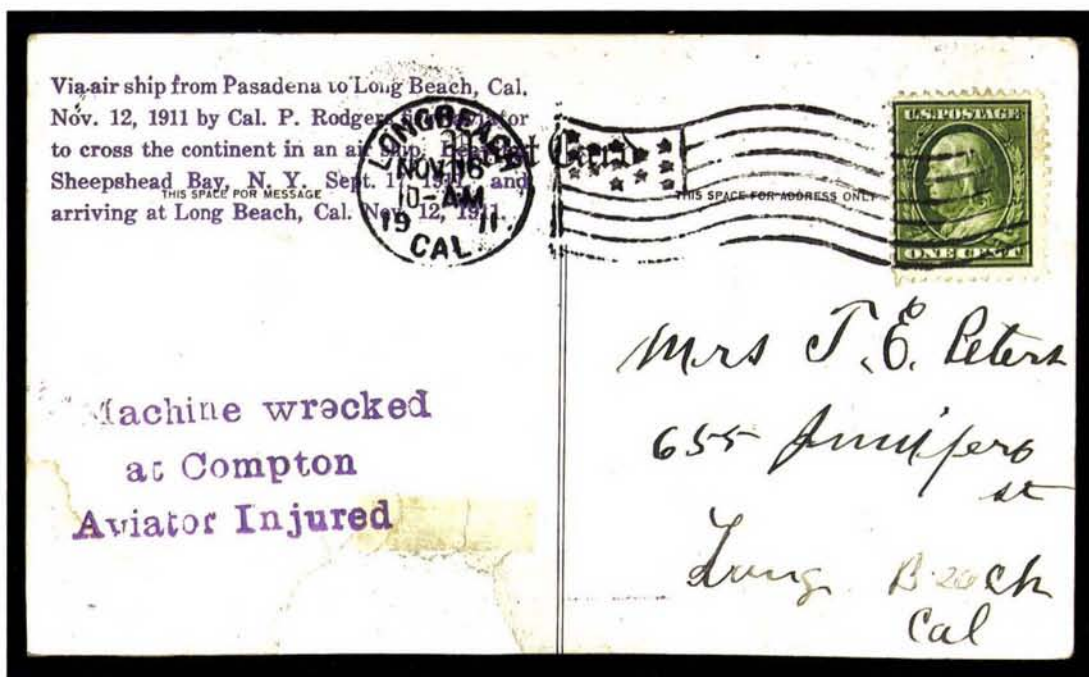 Via air ship from Pasadena to Long Beach, Cal.
Nov. 12, 1911 by Cal. P. Rodgers
to cross the continent in an air ship.
Sheepshead Bay, N. Y. Sept. 17 and
arriving at Long Beach, Cal. Nov. 12, 1911.
THIS SPACE FOR MESSAGE
LONG BEACH
NOV 16
10-AM
19 11.
CAL.
Card
THIS SPACE FOR ADDRESS ONLY
U.S. POSTAGE
ONE CENT
Machine wrecked
at Compton
Aviator Injured
Mrs T. E. Peters
655 Junipero
st
Long Beach
Cal